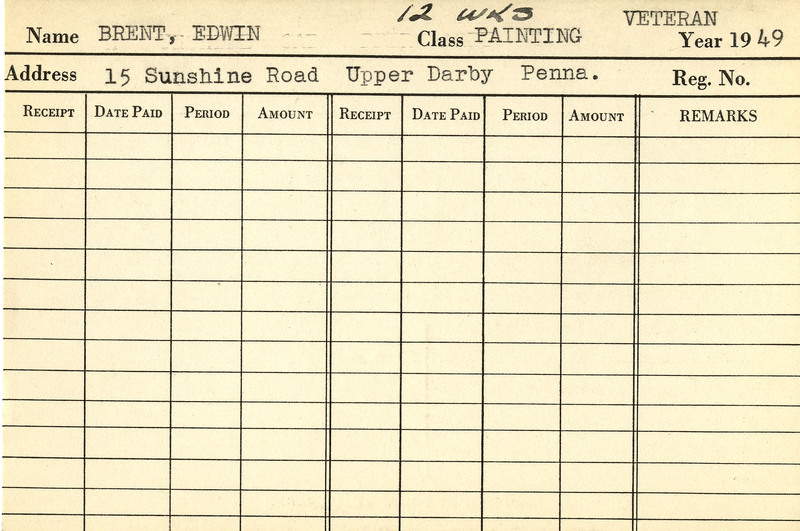 12 WKS VETERAN
Name BRENT, EDWIN Class PAINTING Year 1949
Address 15 Sunshine Road Upper Darby Penna. Reg. No.
RECEIPT DATE PAID PERIOD AMOUNT RECEIPT DATE PAID PERIOD AMOUNT REMARKS